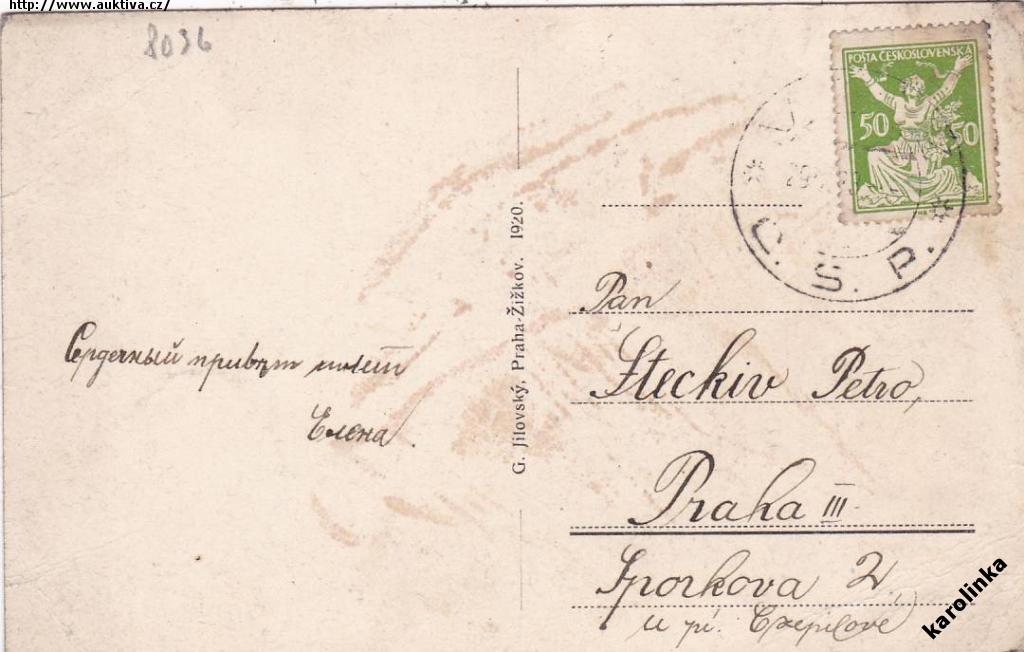 http://www.auktiva.cz/
8036
POŠTA ČESKOSLOVENSKÁ
50 50
Č. S. P.
G. Jilovský, Praha-Žižkov. 1920.
Сердечный привѣт шлет
Елена.
Pan
Steckiv Petro,
Praha III
Sporkova 2
u pí.
karolinka